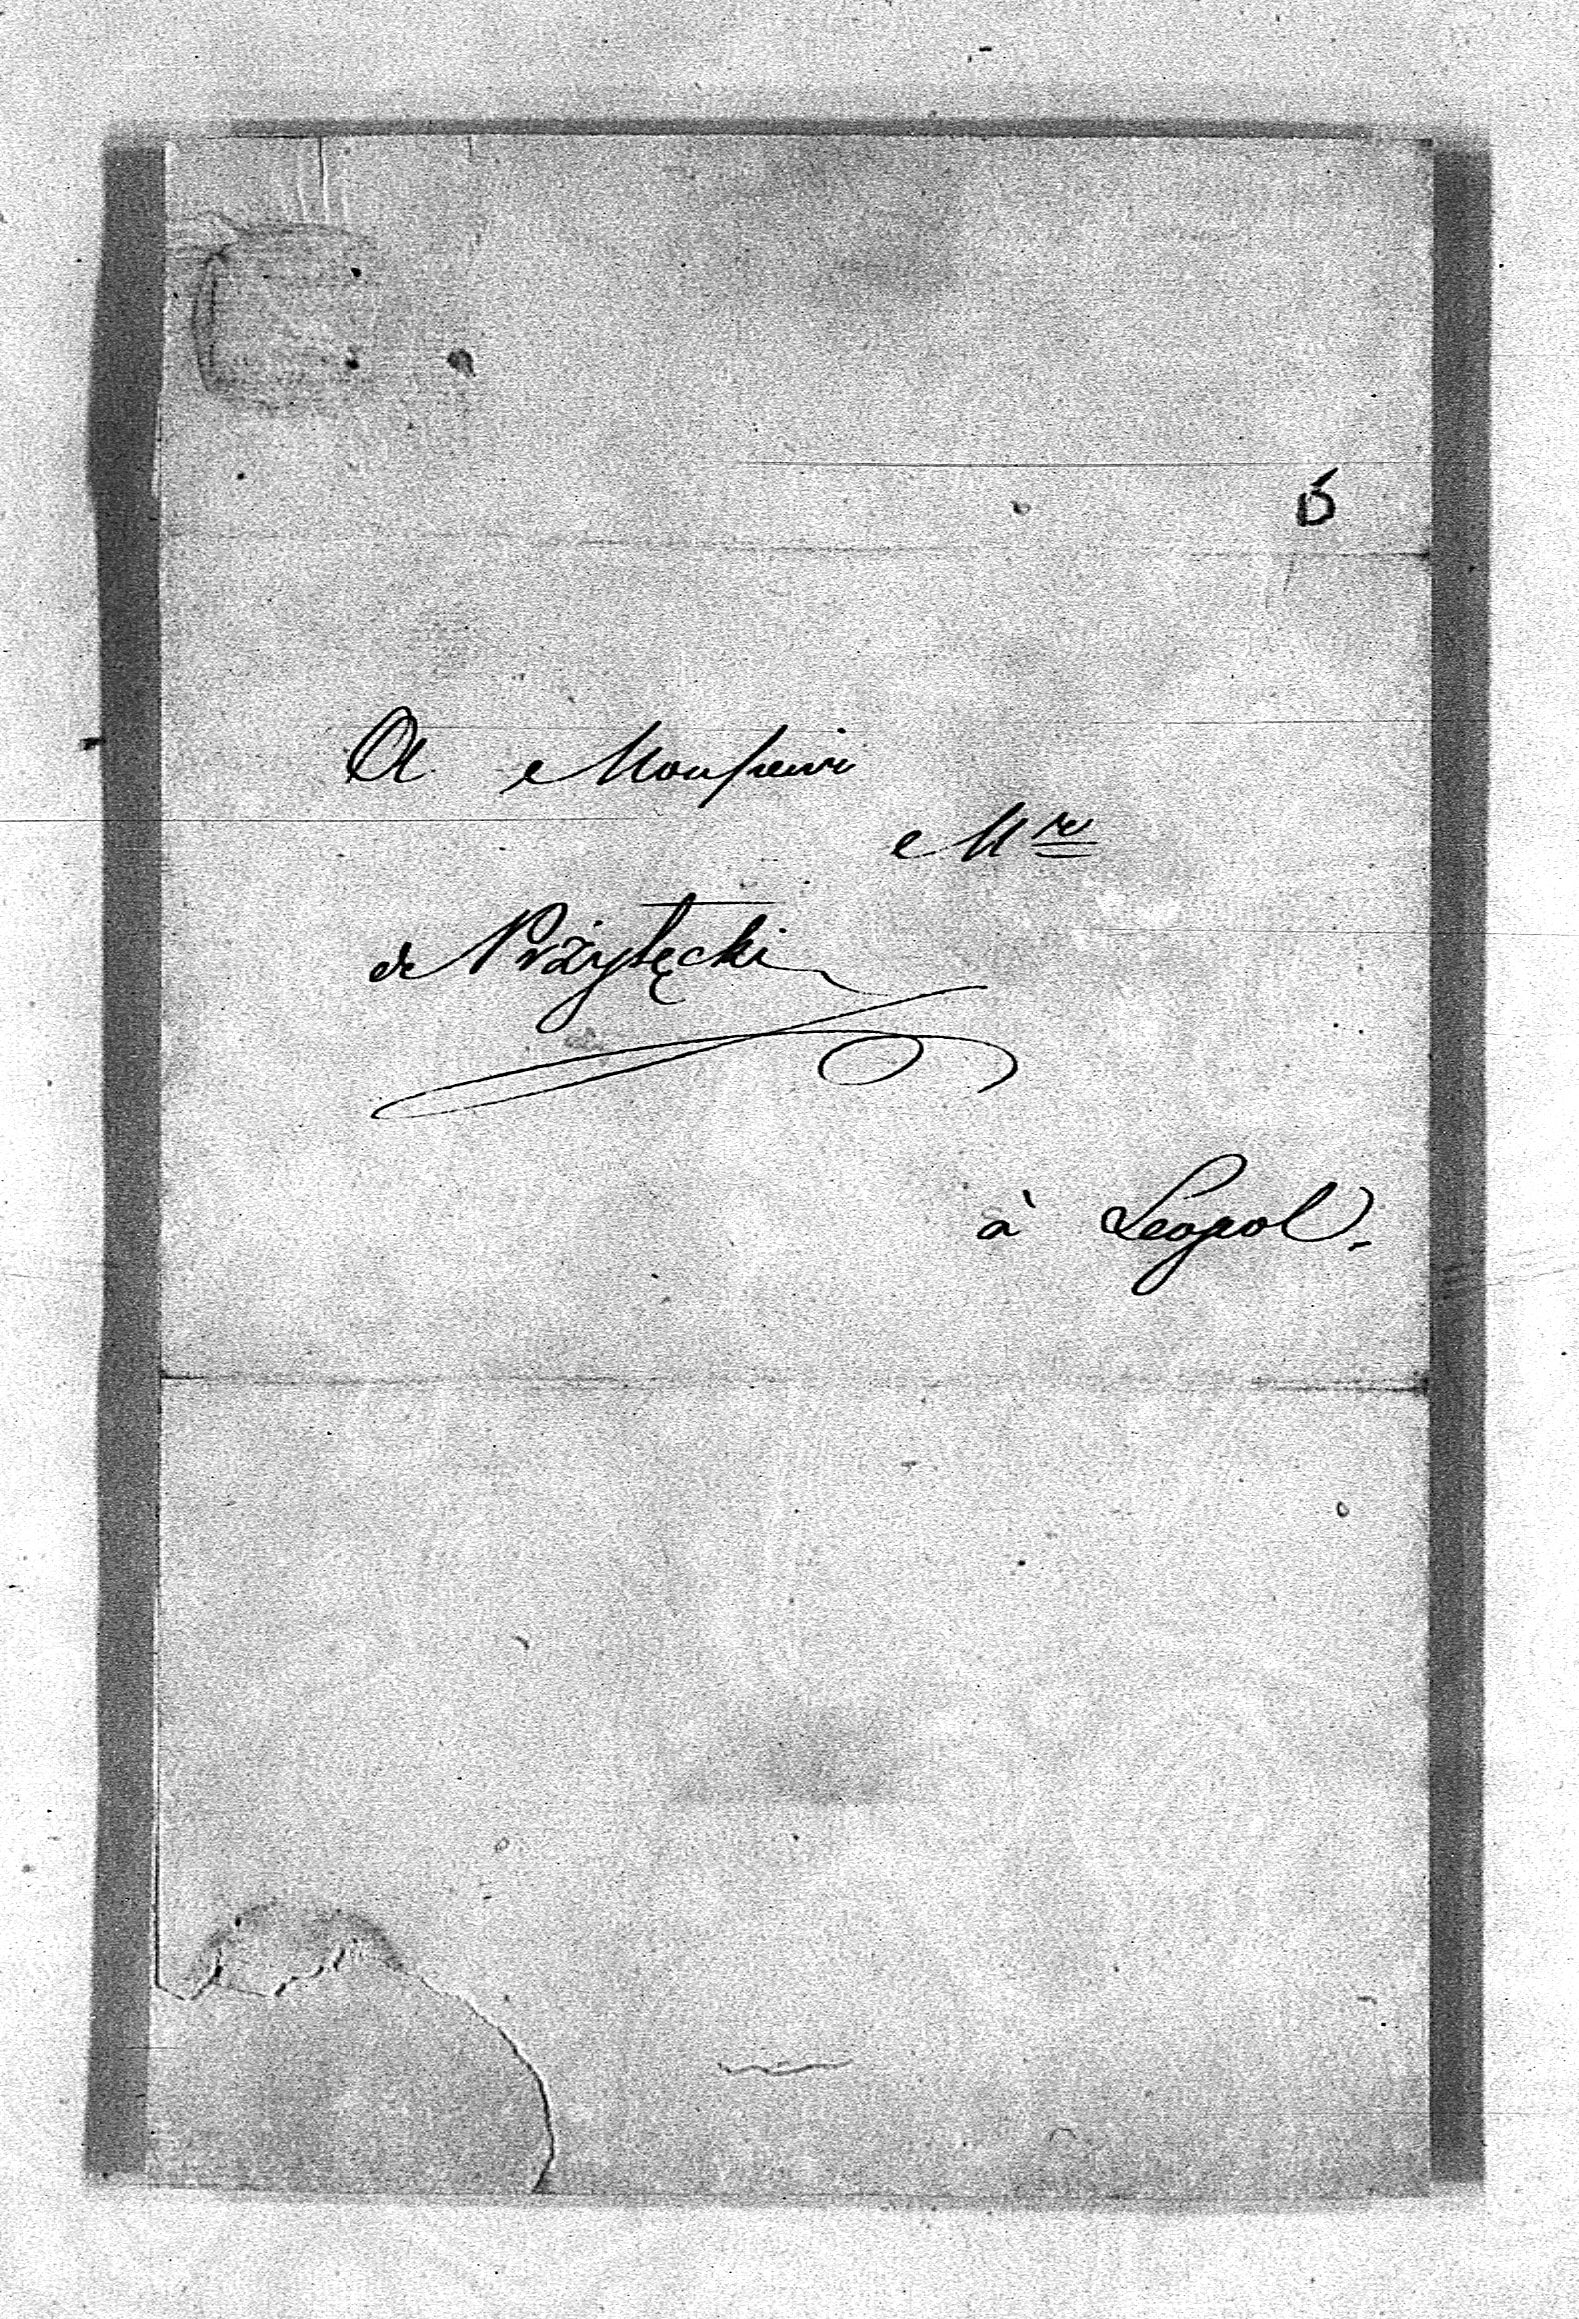 6
A Monsieur
Mre
de Przyłęcki
à Leopol.